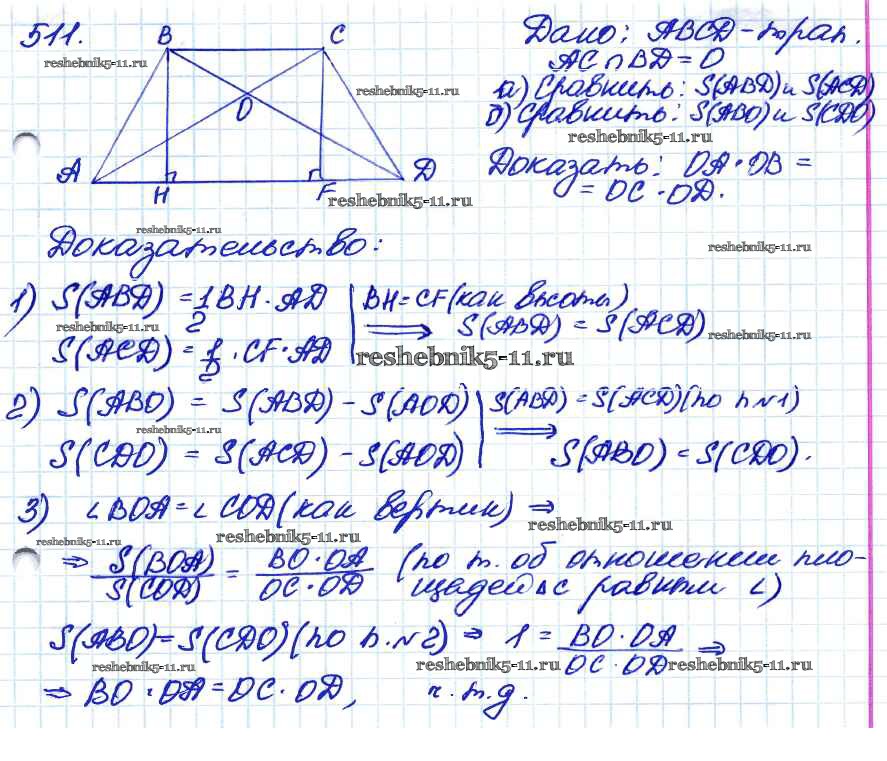 511.
B
C
reshebnik5-11.ru
reshebnik5-11.ru
O
A
H
F
D
reshebnik5-11.ru
Дано: ABCD-трап.
AC ∩ BD = O
а) Сравнить: S(ABD) и S(ACD)
б) Сравнить: S(ABO) и S(CDO)
reshebnik5-11.ru
Доказать: OA · OB =
= OC · OD.
reshebnik5-11.ru
reshebnik5-11.ru
Доказательство:
1) S(ABD) = 1/2 BH · AD | BH = CF (как высоты)
reshebnik5-11.ru
⇒ S(ABD) = S(ACD)
reshebnik5-11.ru
S(ACD) = 1/2 · CF · AD
reshebnik5-11.ru
2) S(ABO) = S(ABD) - S(AOD) | S(ABD) = S(ACD) (по п №1)
reshebnik5-11.ru
S(CDO) = S(ACD) - S(AOD) ⇒ S(ABO) = S(CDO).
3) ∠BOA = ∠COD (как вертик) ⇒
reshebnik5-11.ru
reshebnik5-11.ru
reshebnik5-11.ru
⇒ S(BOA)/S(COD) = BO · OA/OC · OD (по т. об отношении пло-
щадей Δ с равным ∠)
S(ABO) = S(CDO) (по п. №2) ⇒ 1 = BO · OA/OC · OD ⇒
reshebnik5-11.ru
reshebnik5-11.ru
reshebnik5-11.ru
⇒ BO · OA = OC · OD, ч.т.д.